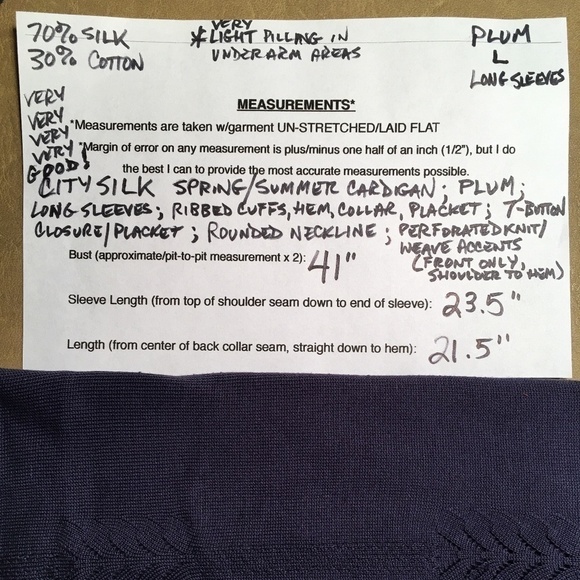 70% SILK
30% COTTON
* VERY LIGHT PILLING IN
UNDERARM AREAS
PLUM
L
LONG SLEEVES
VERY
VERY
VERY
VERY
GOOD!
MEASUREMENTS*
*Measurements are taken w/garment UN-STRETCHED/LAID FLAT
*Margin of error on any measurement is plus/minus one half of an inch (1/2"), but I do
the best I can to provide the most accurate measurements possible.
CITY SILK SPRING/SUMMER CARDIGAN; PLUM;
LONG SLEEVES; RIBBED CUFFS, HEM, COLLAR, PLACKET; 7-BUTTON
CLOSURE/PLACKET; ROUNDED NECKLINE; PERFORATED KNIT/
WEAVE ACCENTS
(FRONT ONLY,
SHOULDER TO HEM)
Bust (approximate/pit-to-pit measurement x 2): 41"
Sleeve Length (from top of shoulder seam down to end of sleeve): 23.5"
Length (from center of back collar seam, straight down to hem): 21.5"